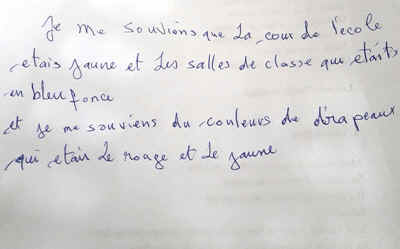 Je me souviens que La cour de l'ecole
etais jaune et Les salles de classe qui etaits
en bleu fonce
et je me souviens du couleurs de drapeaux
qui etair Le roage et Le jaune